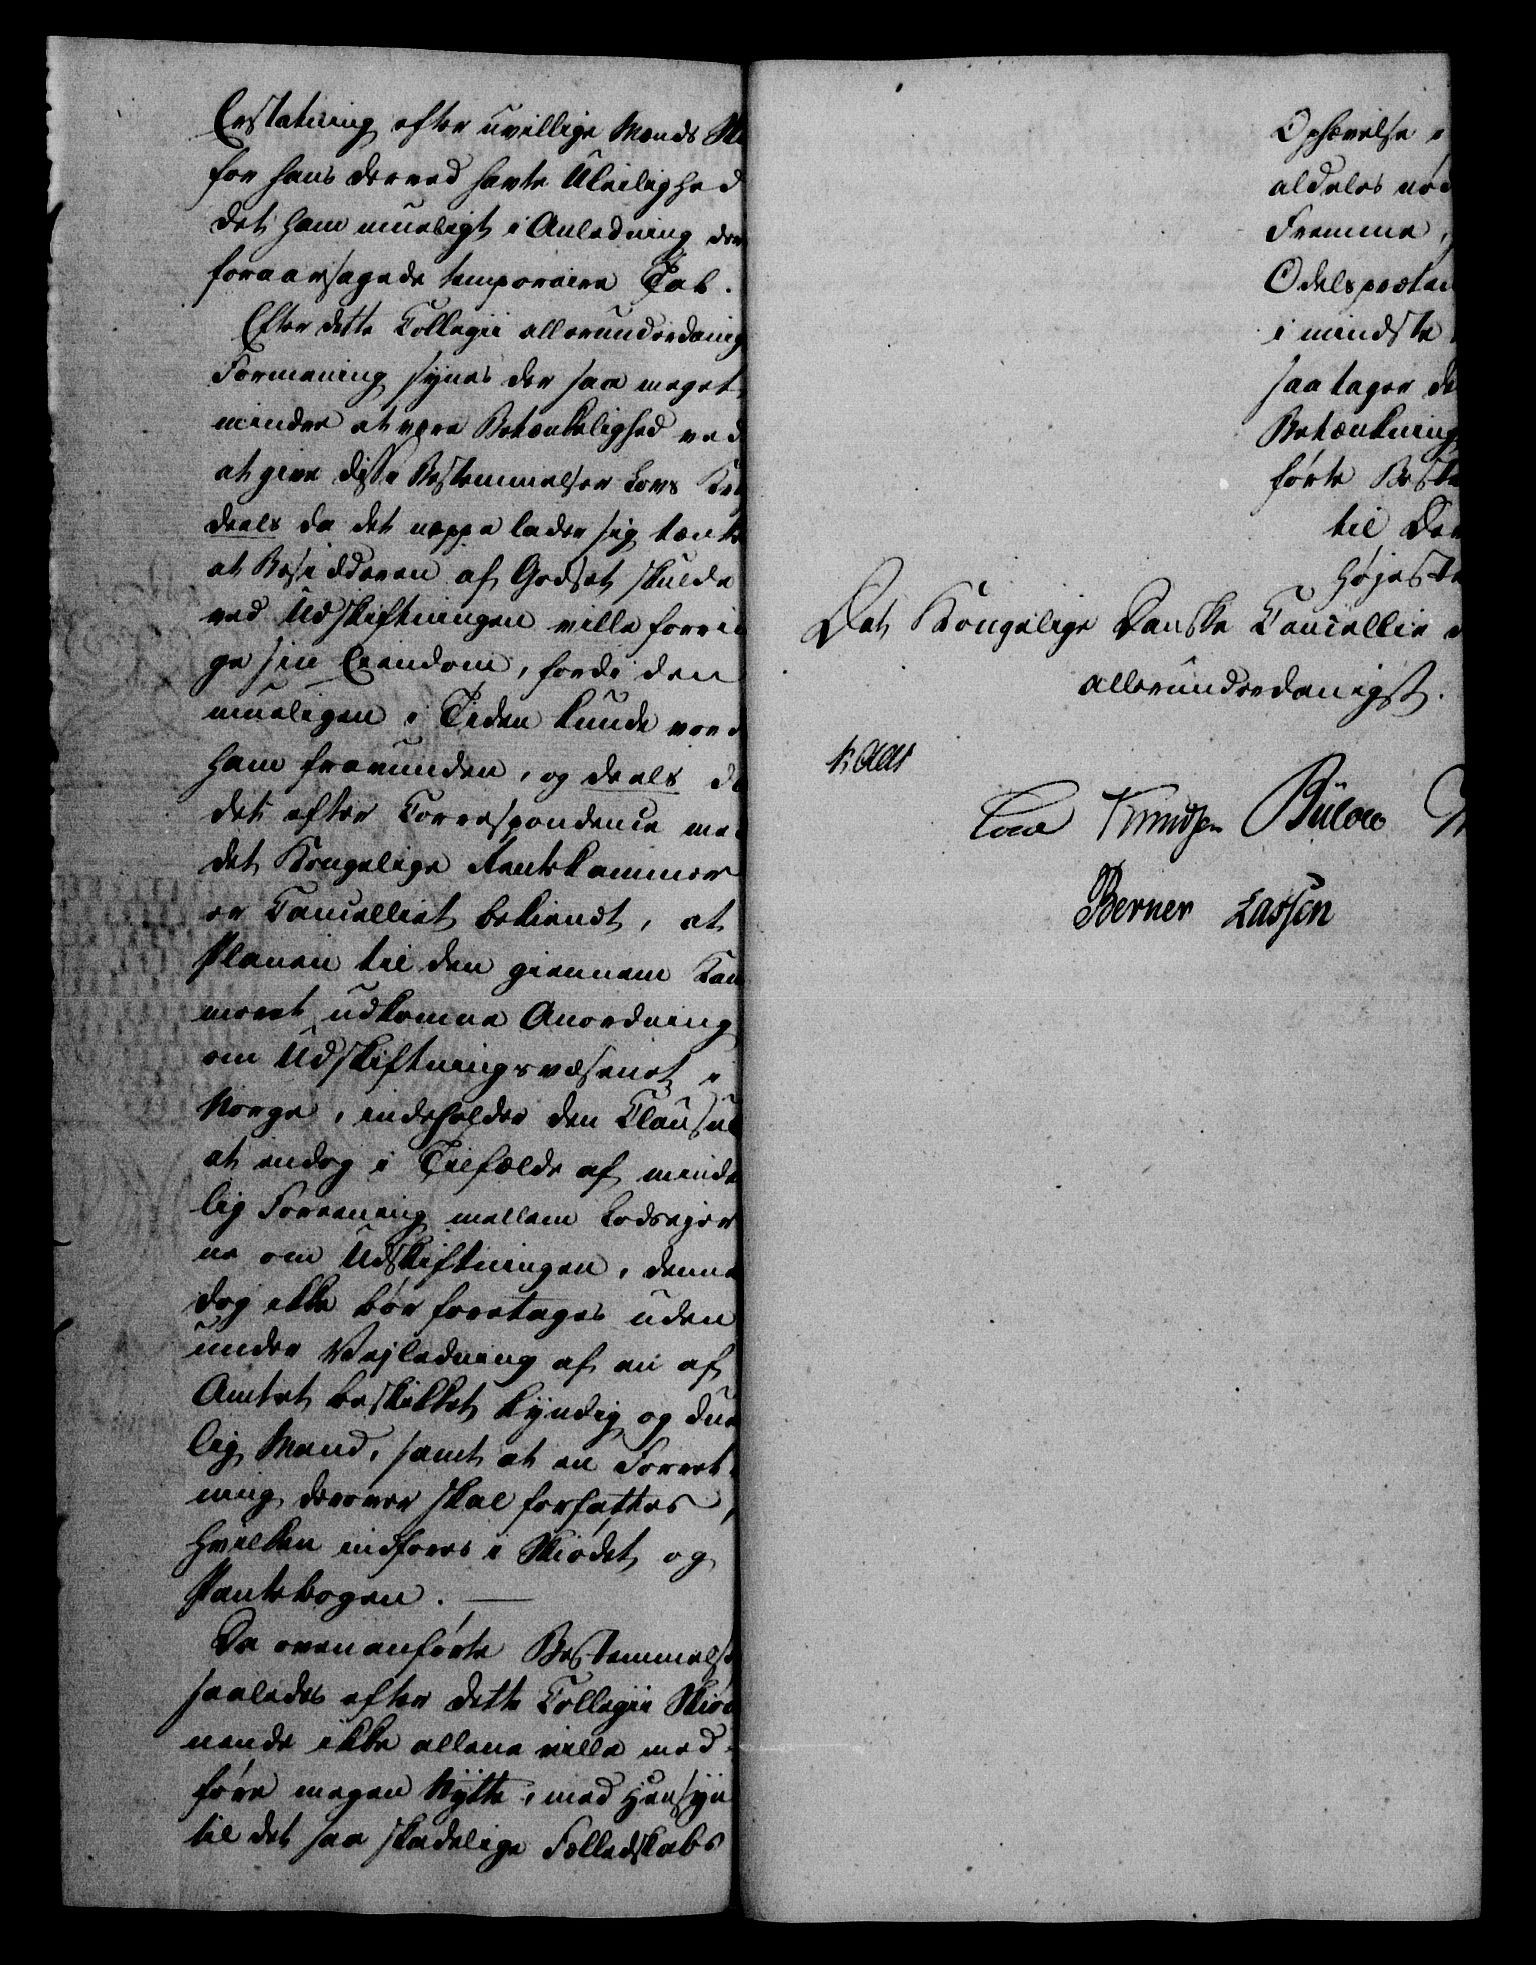 Erstatning efter uvillige Mænds
for hans derved havte Uleilighed
det ham mueligt i Anledning der
foraarsagede temporaire Tab.
Efter dette Collegii allerunderdanig
Formening synes der saa meget
mindre at være Betænkelighed ved
at give disse Bestemmelser Lovs
deels da det neppe lader sig tænke
at Besidderen af Godset skulde
ved Udskiftningen ville forrin
ge sin Eiendom, fordi den
mueligen i Tiden kunde vorde
ham fravunden, og deels da
det efter Correspondence med
det Kongelige Rentekammer
er Cancelliet bekiendt, at
Planen til den giennem Kam
meret udkomne Anordning
om Udskiftningsvæsenet i
Norge, indeholder den Clausul
at endog i Tilfælde af minde
lig Forening mellem Lodseyer
ne om Udskiftningen, denne
dog ikke bør foretages uden
under Vejledning af en af
Amtet beskikket kyndig og due
lig Mand, samt at en Forret
ning derover skal forfattes,
hvilken indføres i Skiødet og
Pantebogen. —
Da ovenanførte Bestemmelse
saaledes efter dette Collegii Skiøn
nende ikke allene ville med-
føre megen Nytte, med Hensyn
til det saa skadelige Fælledskabs
Ophævelse
aldeles nød
Fremme,
Odelsprætend
i mindste
saa tager de
Betænkning
førte Beste
til Der
højeste
Det Kongelige Danske Cancellie
allerunderdanigst.
Kaas
Cold Knudsen Bülow
Berner Lassen